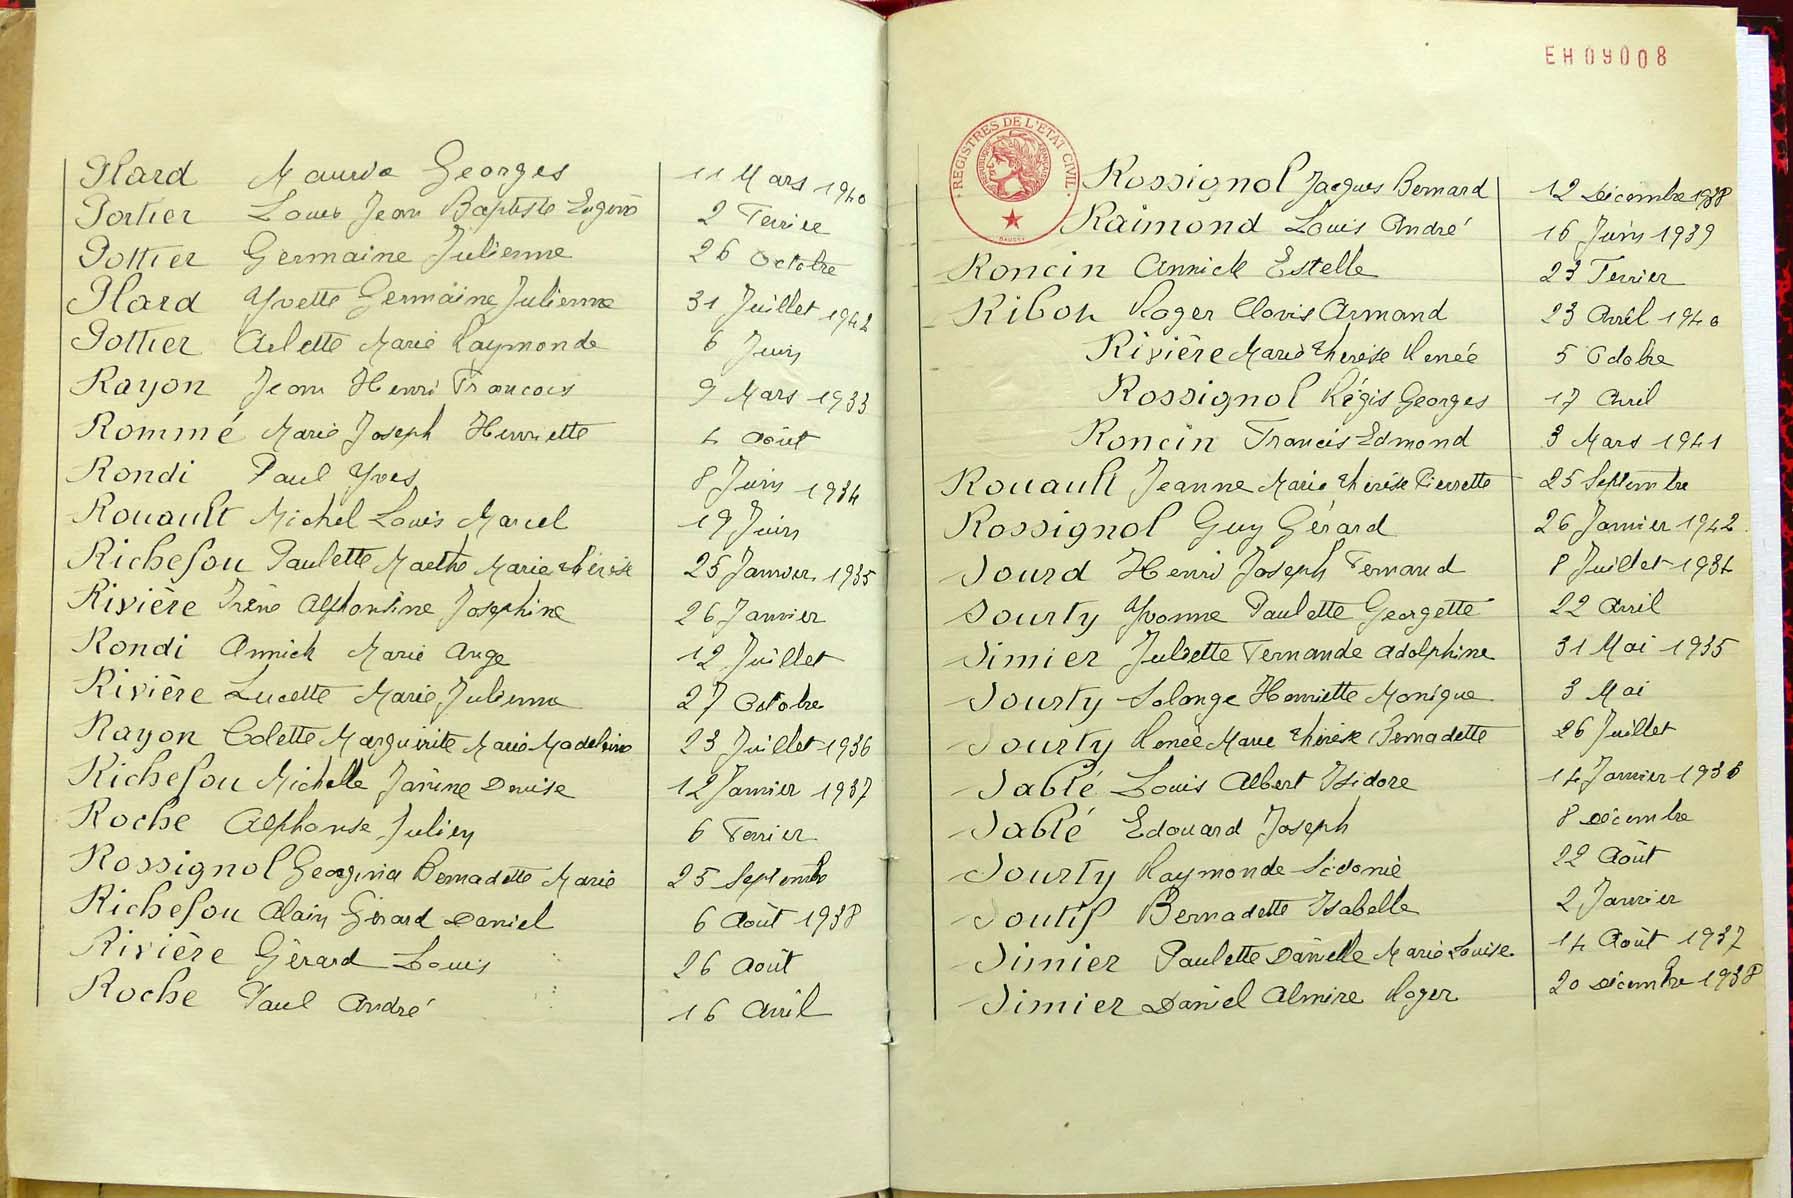 Plard Maurice Georges 11 Mars 1940
Portier Louis Jean Baptiste Eugène 2 Fevrier
Pottier Germaine Julienne 26 Octobre
Plard Yvette Germaine Julienne 31 Juillet 1942
Pottier Arlette Marie Raymonde 6 Juin
Rayon Jean Henri François 9 Mars 1933
Rommé Marie Joseph Henriette 4 Août
Rondi Paul Yves 8 Juin 1934
Rouault Michel Louis Marcel 19 Juin
Richefou Paulette Marthe Marie Thérèse 25 Janvier 1935
Rivière Irène Alphonsine Josephine 26 Janvier
Rondi Annick Marie Ange 12 Juillet
Rivière Lucette Marie Julienne 27 Octobre
Rayon Colette Marguerite Marie Madeleine 23 Juillet 1936
Richefou Michelle Janine Denise 12 Janvier 1937
Roche Alphonse Julien 6 Fevrier
Rossignol Georgina Bernadette Marie 25 Septembre
Richefou Alain Gérard Daniel 6 Août 1938
Rivière Gérard Louis 26 Août
Roche Paul André 16 Avril
EH09008
REGISTRES DE L'ETAT CIVIL
Rossignol Jacques Bernard 12 Décembre 1938
Raimond Louis André 16 Juin 1939
Roncin Annick Estelle 23 Fevrier
Ribot Roger Clovis Armand 23 Avril 1940
Rivière Marie Thérèse Renée 5 Octobre
Rossignol Régis Georges 17 Avril
Roncin Francis Edmond 3 Mars 1941
Rouault Jeanne Marie Thérèse Pierrette 25 Septembre
Rossignol Guy Gérard 26 Janvier 1942
Sourd Henri Joseph Fernand 8 Juillet 1934
Sourty Yvonne Paulette Georgette 22 Avril
Simier Juliette Fernande Adolphine 31 Mai 1935
Sourty Solange Henriette Monique 3 Mai
Sourty Renée Marie Thérèse Bernadette 26 Juillet
Sablé Louis Albert Isidore 14 Janvier 1936
Sablé Edouard Joseph 8 Décembre
Sourty Raymonde Sidonie 22 Août
Soutif Bernadette Isabelle 2 Janvier
Simier Paulette Danielle Marie Louise 14 Août 1937
Simier Daniel Almire Roger 20 Décembre 1938